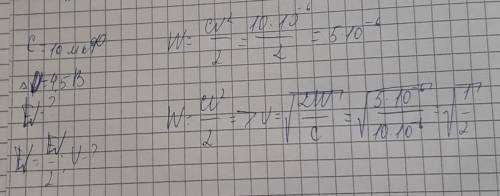 C = 10 мкФ
ΔU = 4,5 В
W - ?
W = W/2 ; U - ?
W = CU²/2 = 10·10⁻⁶/2 = 5·10⁻⁶
W = CU²/2 => U = √2W/C = √5·10⁻⁶/10·10⁻⁶ = √1/2